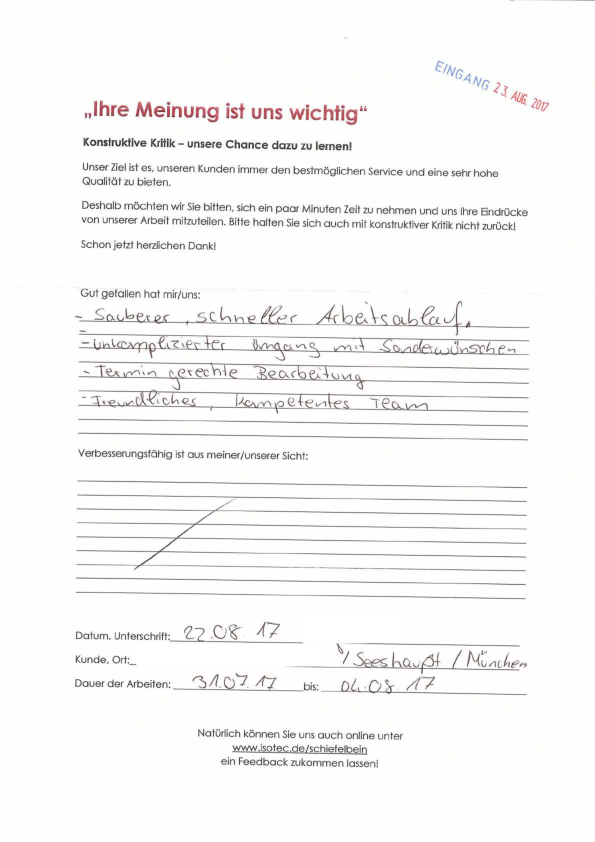 EINGANG 23. AUG. 2017
„Ihre Meinung ist uns wichtig“
Konstruktive Kritik – unsere Chance dazu zu lernen!
Unser Ziel ist es, unseren Kunden immer den bestmöglichen Service und eine sehr hohe
Qualität zu bieten.
Deshalb möchten wir Sie bitten, sich ein paar Minuten Zeit zu nehmen und uns Ihre Eindrücke
von unserer Arbeit mitzuteilen. Bitte halten Sie sich auch mit konstruktiver Kritik nicht zurück!
Schon jetzt herzlichen Dank!
Gut gefallen hat mir/uns:
- Sauberer, schneller Arbeitsablauf.
- unkomplizierter Umgang mit Sonderwünschen
- Termin gerechte Bearbeitung
- Freundliches, kompetentes Team
Verbesserungsfähig ist aus meiner/unserer Sicht:
Datum, Unterschrift: 22.08.17
Kunde, Ort: / Seeshaupt / München
Dauer der Arbeiten: 31.07.17 bis: 04.08.17
Natürlich können Sie uns auch online unter
www.isotec.de/schiefelbein
ein Feedback zukommen lassen!